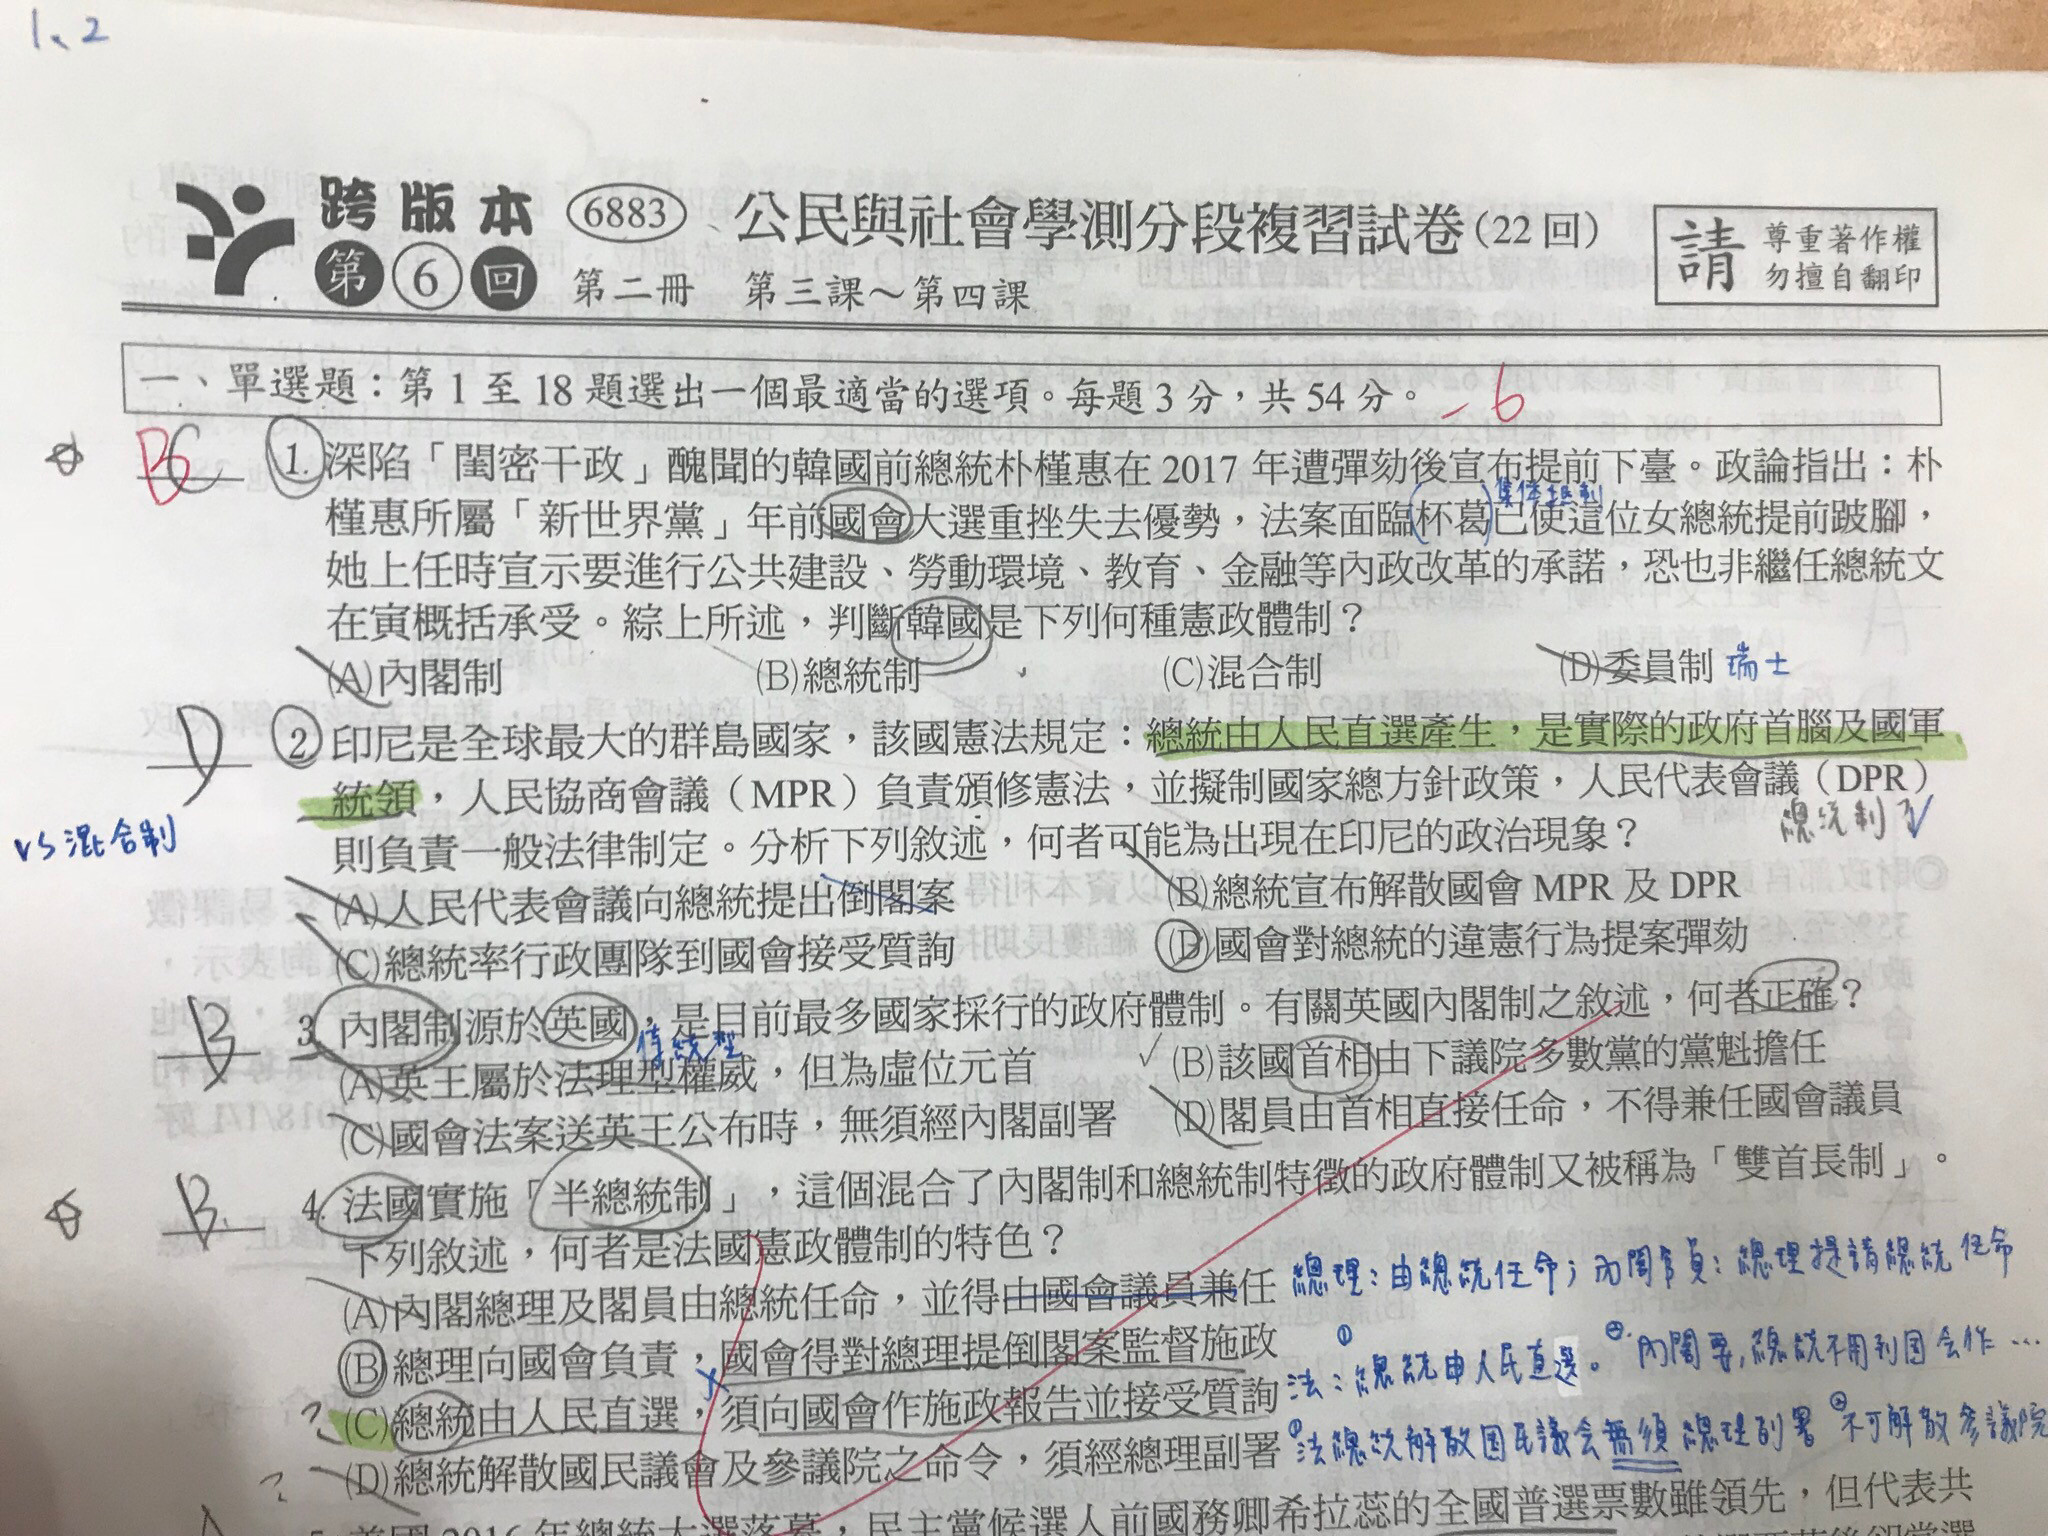 1、2
跨版本 6883 公民與社會學測分段複習試卷(22回)
請 尊重著作權 勿擅自翻印
第6回 第二冊 第三課～第四課
一、單選題：第 1 至 18 題選出一個最適當的選項。每題 3 分，共 54 分。 -6
B C 1. 深陷「閨密干政」醜聞的韓國前總統朴槿惠在 2017 年遭彈劾後宣布提前下臺。政論指出：朴
集體抵制
槿惠所屬「新世界黨」年前國會大選重挫失去優勢，法案面臨杯葛已使這位女總統提前跛腳，
她上任時宣示要進行公共建設、勞動環境、教育、金融等內政改革的承諾，恐也非繼任總統文
在寅概括承受。綜上所述，判斷韓國是下列何種憲政體制？
(A)內閣制 (B)總統制 (C)混合制 (D)委員制 瑞士
D 2. 印尼是全球最大的群島國家，該國憲法規定：總統由人民直選產生，是實際的政府首腦及國軍
統領，人民協商會議（MPR）負責頒修憲法，並擬制國家總方針政策，人民代表會議（DPR）
vs混合制
總統制
則負責一般法律制定。分析下列敘述，何者可能為出現在印尼的政治現象？
(A)人民代表會議向總統提出倒閣案 (B)總統宣布解散國會 MPR 及 DPR
(C)總統率行政團隊到國會接受質詢 (D)國會對總統的違憲行為提案彈劾
B 3. 內閣制源於英國，是目前最多國家採行的政府體制。有關英國內閣制之敘述，何者正確？
傳統型
(A)英王屬於法理型權威，但為虛位元首 (B)該國首相由下議院多數黨的黨魁擔任
(C)國會法案送英王公布時，無須經內閣副署 (D)閣員由首相直接任命，不得兼任國會議員
B. 4. 法國實施「半總統制」，這個混合了內閣制和總統制特徵的政府體制又被稱為「雙首長制」。
下列敘述，何者是法國憲政體制的特色？
(A)內閣總理及閣員由總統任命，並得由國會議員兼任 總理：由總統任命；內閣官員：總理提請總統任命
(B)總理向國會負責，國會得對總理提倒閣案監督施政
法：①總統由人民直選。②內閣要，總統不用到国会作…
(C)總統由人民直選，須向國會作施政報告並接受質詢
(D)總統解散國民議會及參議院之命令，須經總理副署 ①法總統解散国民議会無須總理副署 ②不可解散參議院
5. 美國 2016 年總統大選落幕，民主黨候選人前國務卿希拉蕊的全國普選票數雖領先，但代表共